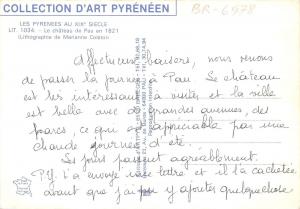 COLLECTION D'ART PYRÉNÉEN
BR-6978
LES PYRENEES AU XIXᵉ SIECLE
LIT. 1034. - Le château de Pau en 1821
(Lithographie de Marianne Colston)
Affectueux baisers, nous venons
de passer la journée à Pau. Le château
est très intéressant à visiter et la ville
est belle avec de grandes avenues, des
parcs, ce qui est appréciable par une
chaude journée d'été.
Les jours passent agréablement.
P.Y. t'a envoyé une lettre et il l'a cachetée
avant que j'ai pu y ajouter quelque chose